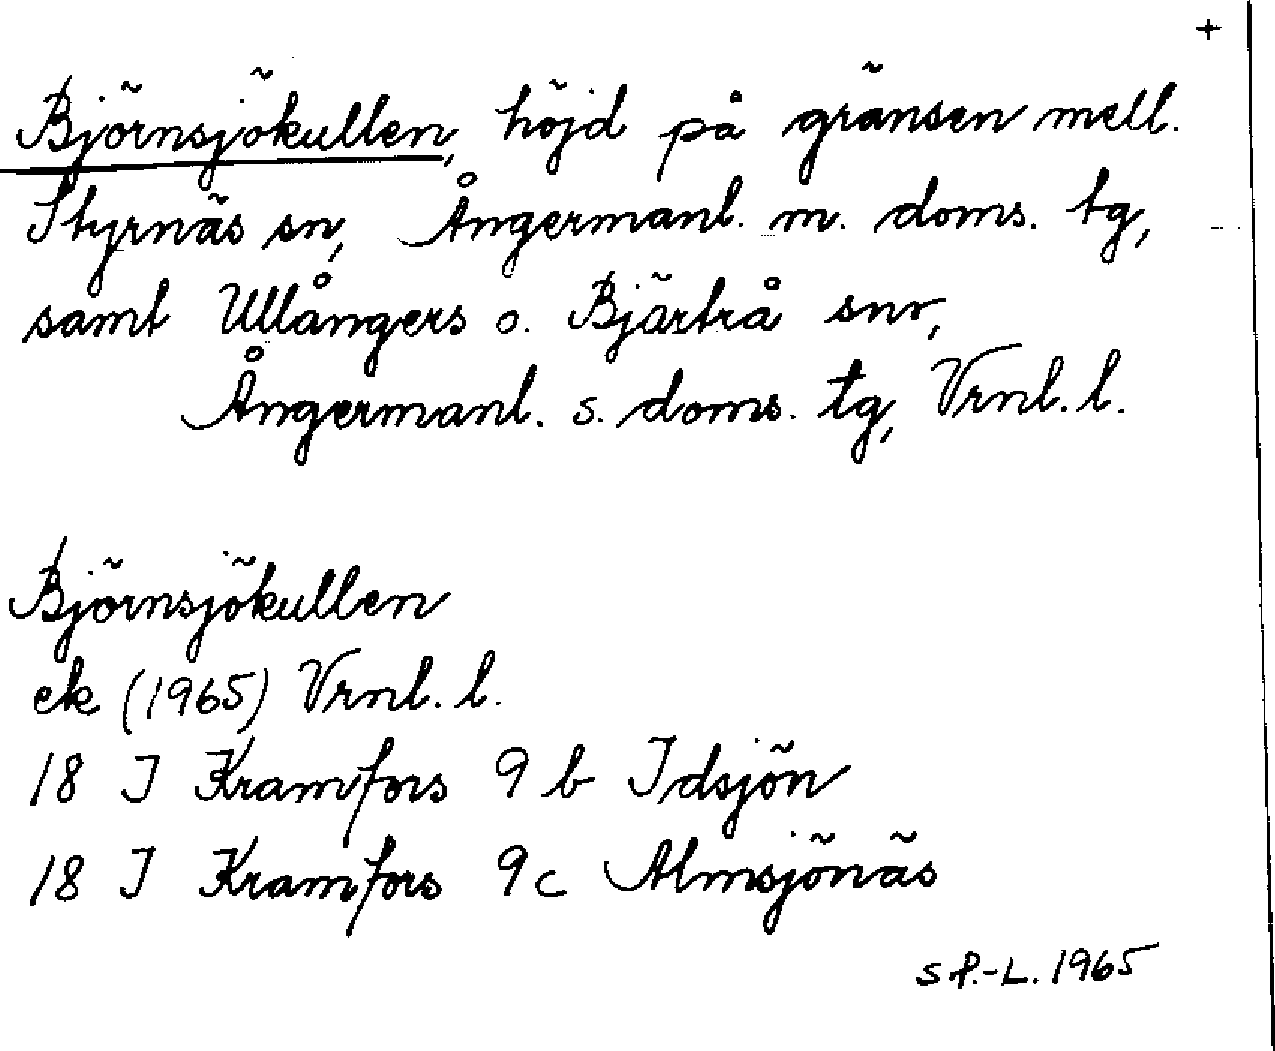 +
Björnsjökullen, höjd på gränsen mell.
Styrnäs sn, Ångermanl. m. doms. tg,
samt Ullångers o. Bjärtrå snr,
Ångermanl. s. doms. tg, Vrnl. l.
Björnsjökullen
ek (1965) Vrnl. l.
18 I Kramfors 9 b Idsjön
18 I Kramfors 9 c Almsjönäs
S P.-L. 1965